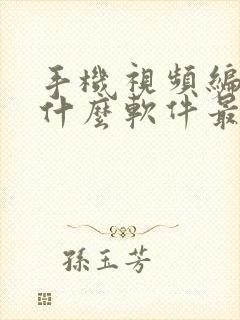 手機視頻編
什麼軟件最
孫玉芳